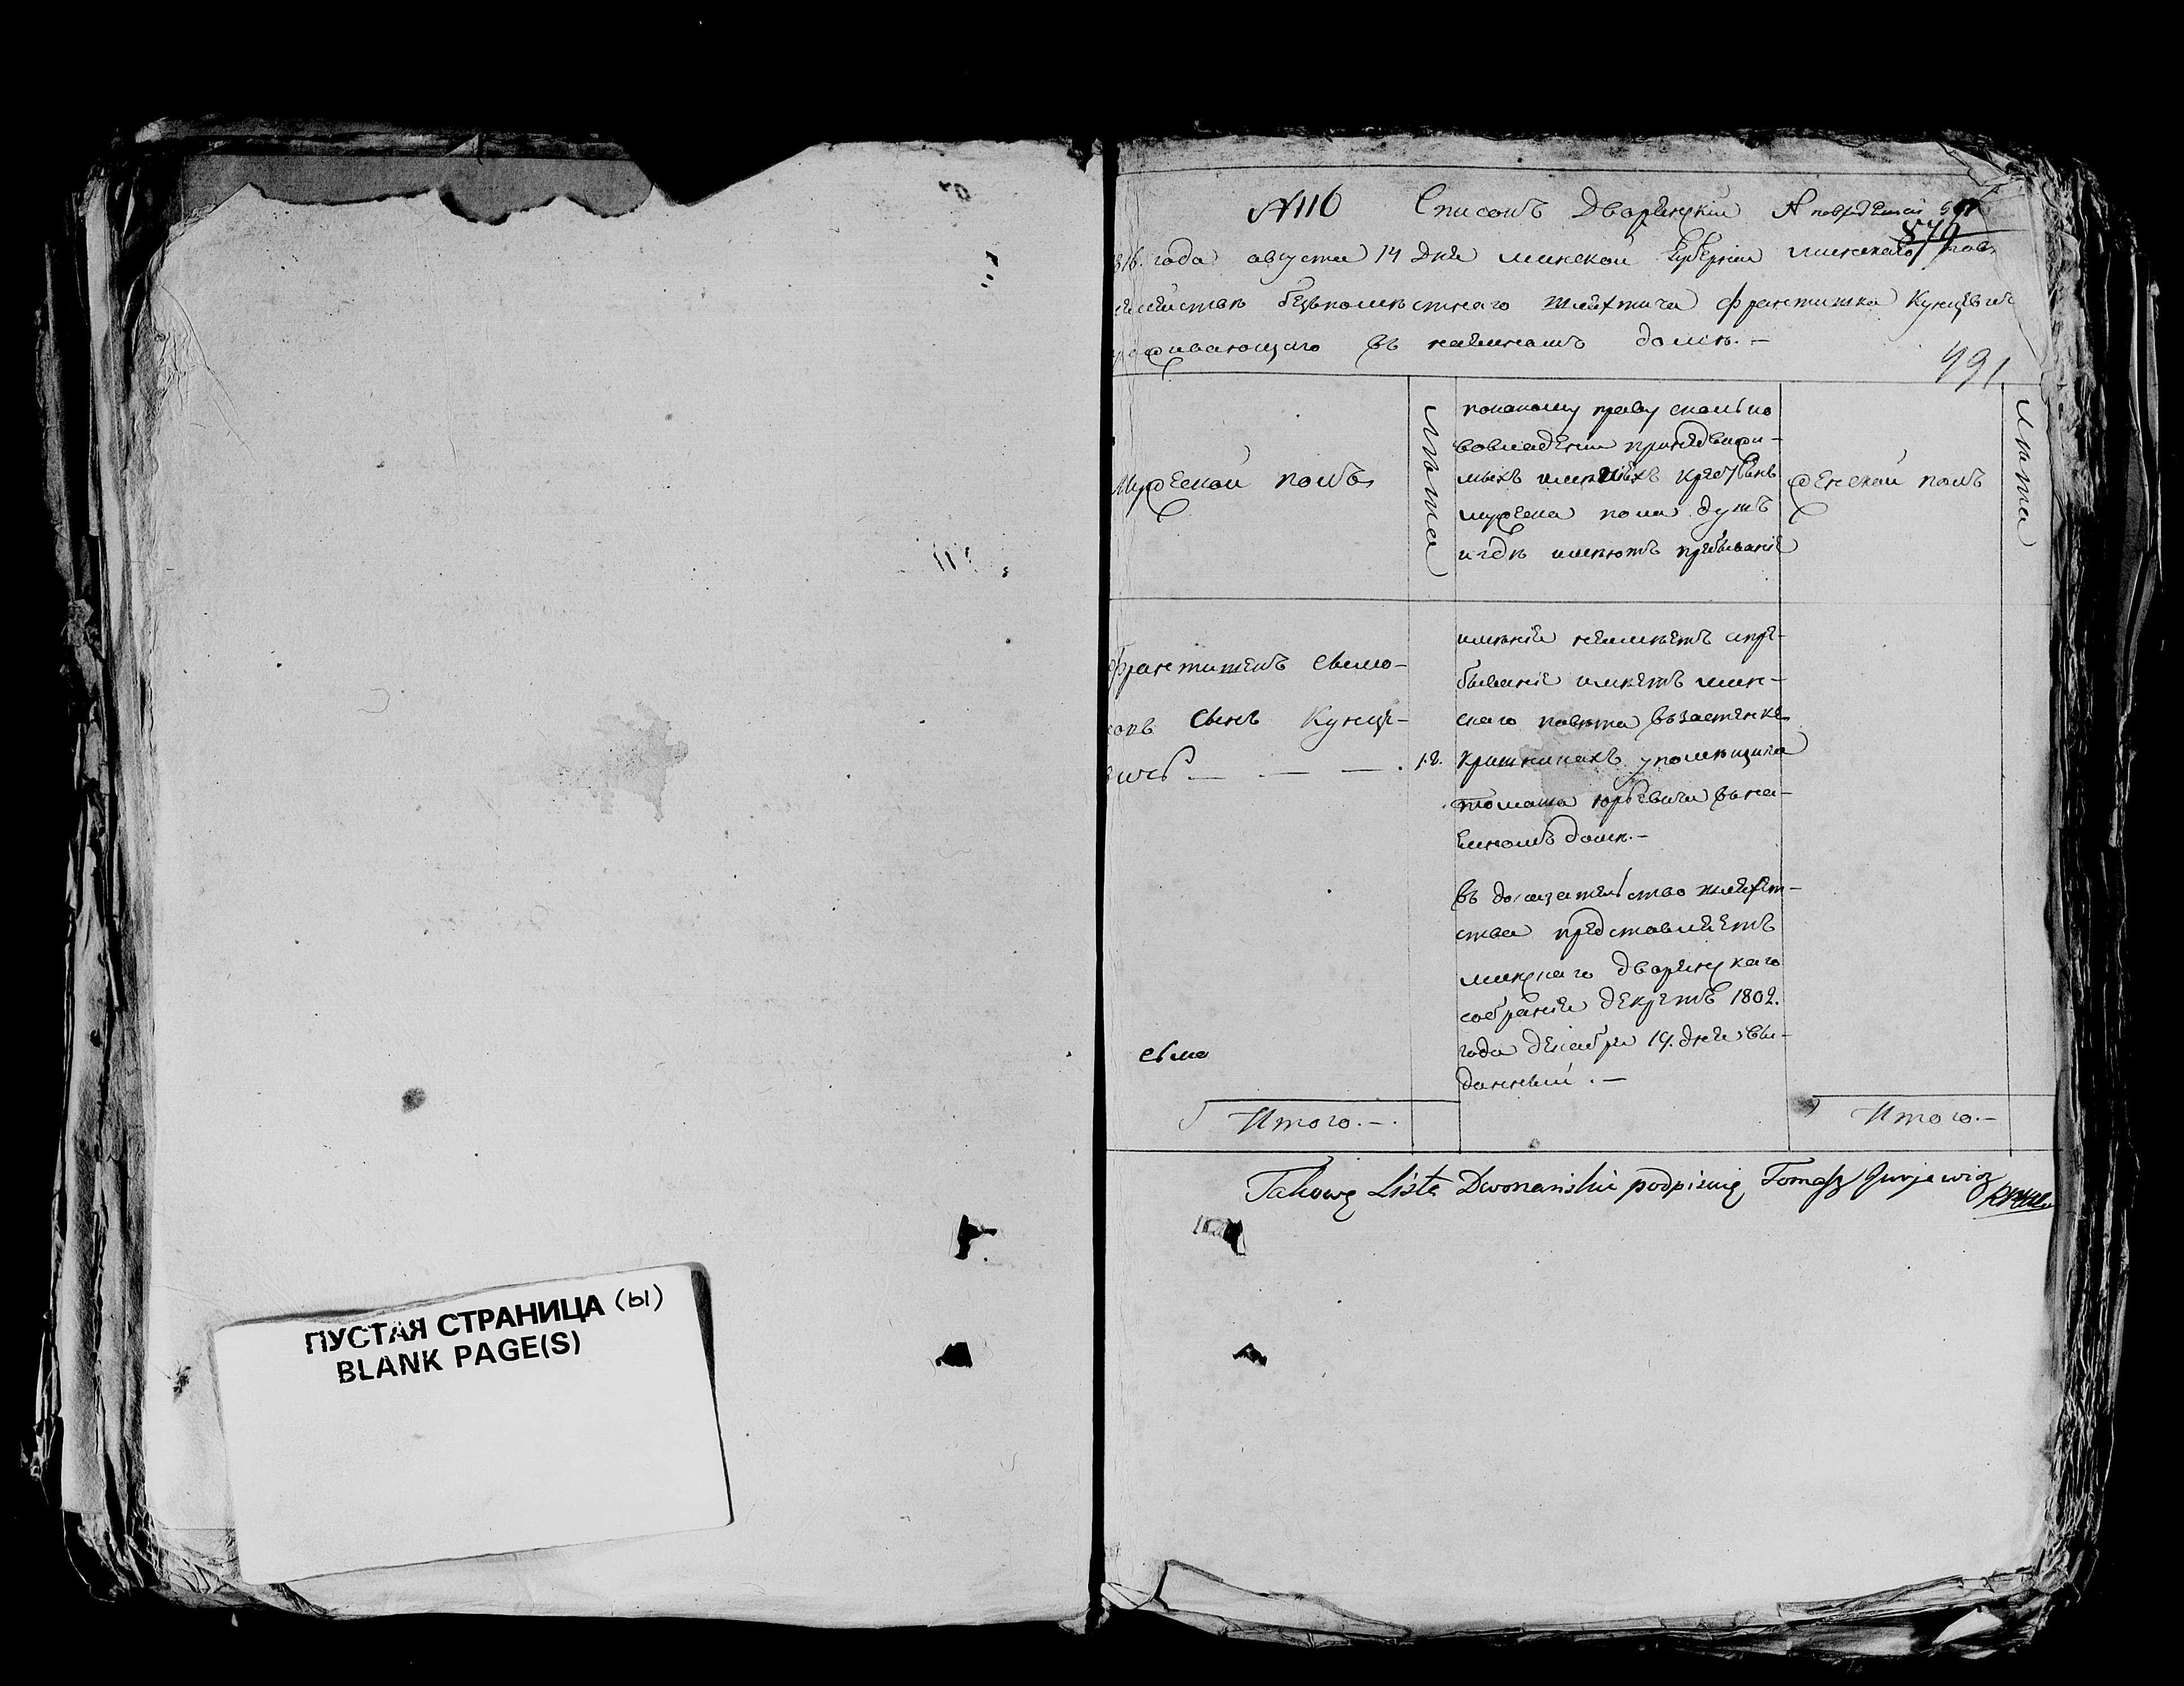 ПУСТАЯ СТРАНИЦА (ы)
BLANK PAGE(S)
№116 Списокъ Дворянскій
874
816. года августа 14 дня минской Губерніи минскаго пов
безпоместнаго шляхтича франтишка Кунцевич
живающаго въ наемномъ доме. —
491
Мужескои полъ
Лѣта
покакому праву сколько
вовладении принедвижи-
мыхъ имениѣхъ крестьянъ
мужеска пола душъ
игдѣ имѣютъ пребываніе
женскои полъ
Лѣта
Франтишекъ Сымо-
новъ Сынъ Кунце-
вичъ — — — .
12.
имѣнія неимѣетъ апре-
бываніе имѣетъ мин-
скаго повѣта въ застенкѣ
упомѣщика
томаша юрьевича вьна-
емномъ доме. —
въ доказательство шляхет-
ства представляетъ
минскаго дворянскаго
собранія декретъ 1802.
года декабря 19. дня вы-
данный . —
Итого. —.
Итого. —
Takowę Listę Dworianskie podpisuię Tomasz Jurjewicz